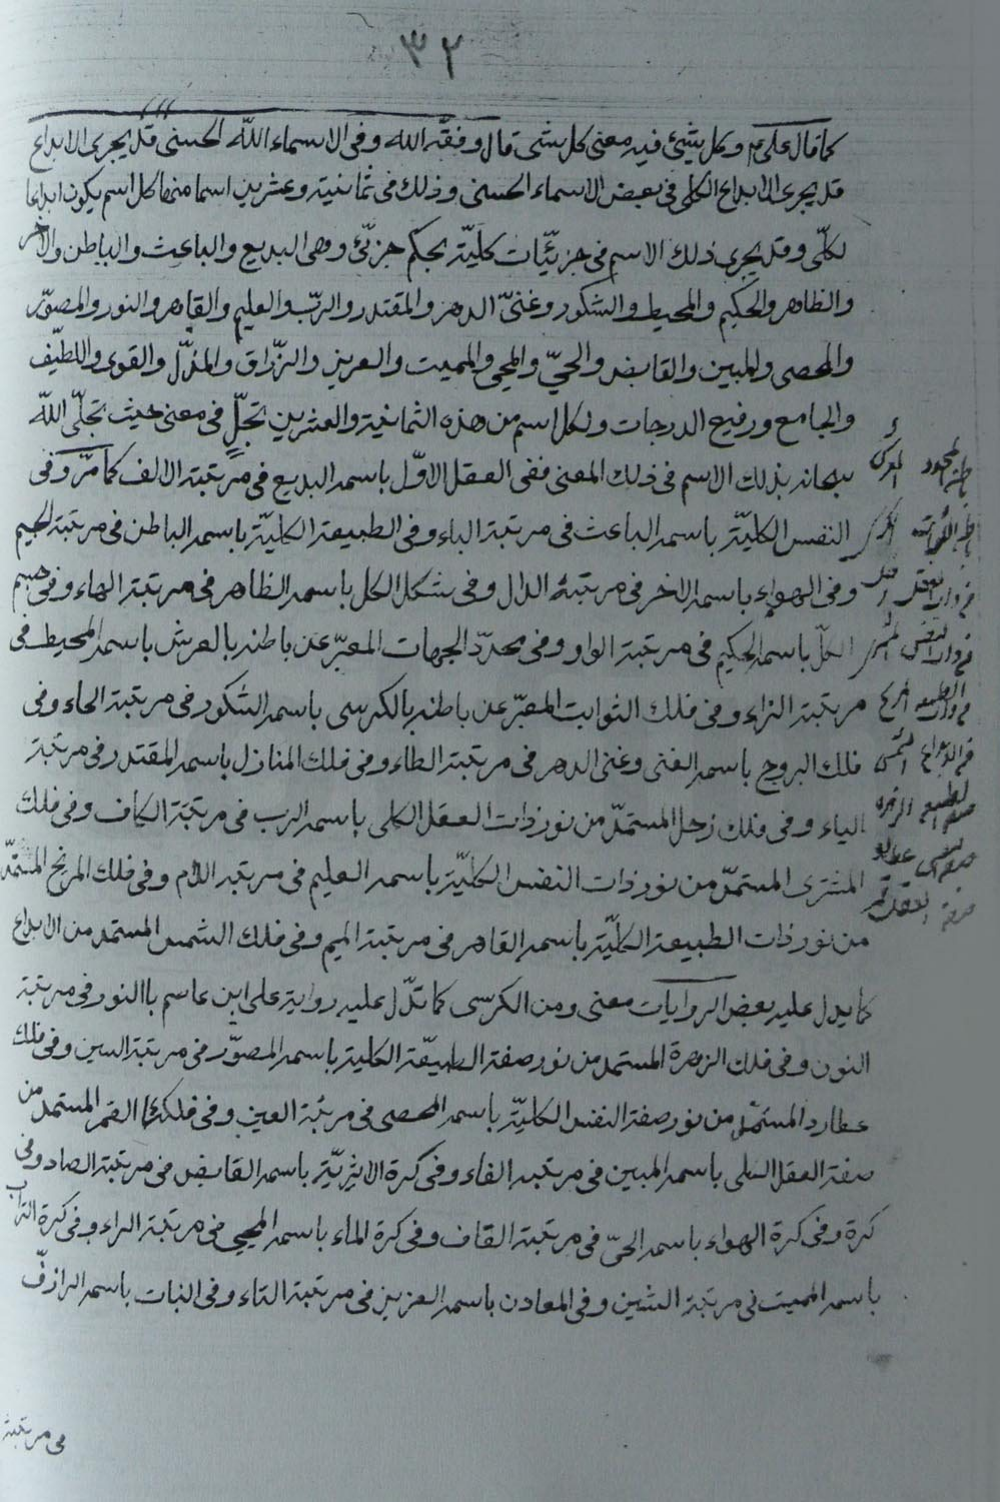 ٣٢
كما قال علي م وكل شئ فيه معنى كل شى قال وفقه الله وفى الاسماء الله الحسنى قد يجرى الابداع
قد يجرى الابداع الكلى فى بعض الاسماء الحسنى وذلك فى ثمانية وعشرين اسما منها كل اسم يكون ابداعا
لكلّى وقد يجرى ذلك الاسم فى جزئيّات كليّة بحكم جزئى وهى البديع والباعث والباطن والاخر
والظاهر والحكيم والمحيط والشكور وغنىّ الدهر والمقتدر والربّ والعليم والقاهر والنور والمصوّر
والمحصى والمبين والقابض والحىّ والمحيى والمميت والعزيز والرّزاق والمذلّ والقوى واللطيف
والجامع ورفيع الدرجات ولكل اسم من هذه الثمانية والعشرين تجلٍّ فى معنى حيث تجلّى اللّه
سبحانه بذلك الاسم فى ذلك المعنى ففى العقل الاوّل باسمه البديع فى مرتبة الالف كما مرّ وفى
النفس الكليّة باسمه الباعث فى مرتبة الباء وفى الطبيعة الكليّة باسمه الباطن فى مرتبة الجيم
وفى الهواء باسمه الاخر فى مرتبة الدال وفى شكل الكل باسمه الظاهر فى مرتبة الهاء وفى جسم
الكلّ باسمه الحكيم فى مرتبة الواو وفى محدّد الجهات المعبّر عن باطنه بالعرش باسمه المحيط فى
مرتبة الزاء وفى فلك الثوابت المعبّر عن باطنه بالكرسى باسمه الشكور فى مرتبة الحاء وفى
فلك البروج باسمه الغنى وغنى الدهر فى مرتبة الطاء وفى فلك المنازل باسمه المقتدر فى مرتبة
الياء وفى فلك زحل المستمدّ من نور ذات العقل الكلى باسمه الرب فى مرتبة الكاف وفى فلك
المشترى المستمدّ من نور ذات النفس الكليّة باسمه العليم فى مرتبة اللام وفى فلك المريخ المستمدّ
من نور ذات الطبيعة الكليّة باسمه القاهر فى مرتبة الميم وفى فلك الشمس المستمد من الابداع
كما يدل عليه بعض الروايات معنى ومن الكرسى كما تدّل عليه رواية على ابن عاصم باالنور فى مرتبة
النون وفى فلك الزهرة المستمد من نور صفة الطبيعّة الكلية باسمه المصوّر فى مرتبة السين وفى فلك
عطارد المستمدّ من نور صفة النفس الكليّة باسمه المحصى فى مرتبة العين وفى فلك القمر المستمد من
صفة العقل الكلى باسمه المبين فى مرتبة الفاء وفى كرة الاثيريّة باسمه القابض فى مرتبة الصاد وفى
كرة وفى كرة الهواء باسمه الحىّ فى مرتبة القاف وفى كرة الماء باسمه المحيى فى مرتبة الراء وفى كرة التراب
باسمه المميت فى مرتبة الشين وفى المعادن باسمه العزيز فى مرتبة التاء وفى النبات باسمه الرازق
فى مرتبة